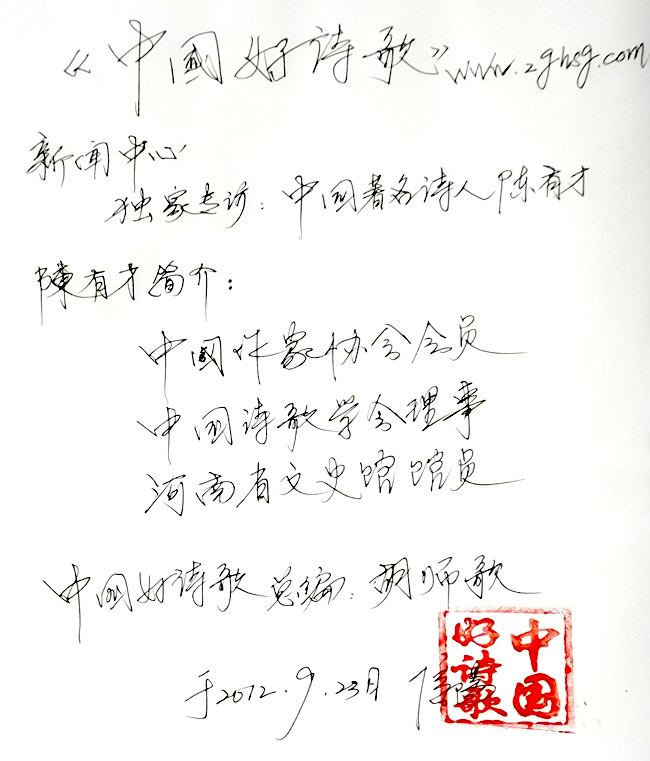 《中国好诗歌》www.zghsg.com
新闻中心
独家专访：中国著名诗人陈有才
陳有才简介：
中国作家协会会员
中国诗歌学会理事
河南省文史馆馆员
中国好诗歌总编：胡师歌
于2012.9.23日
中国好诗歌